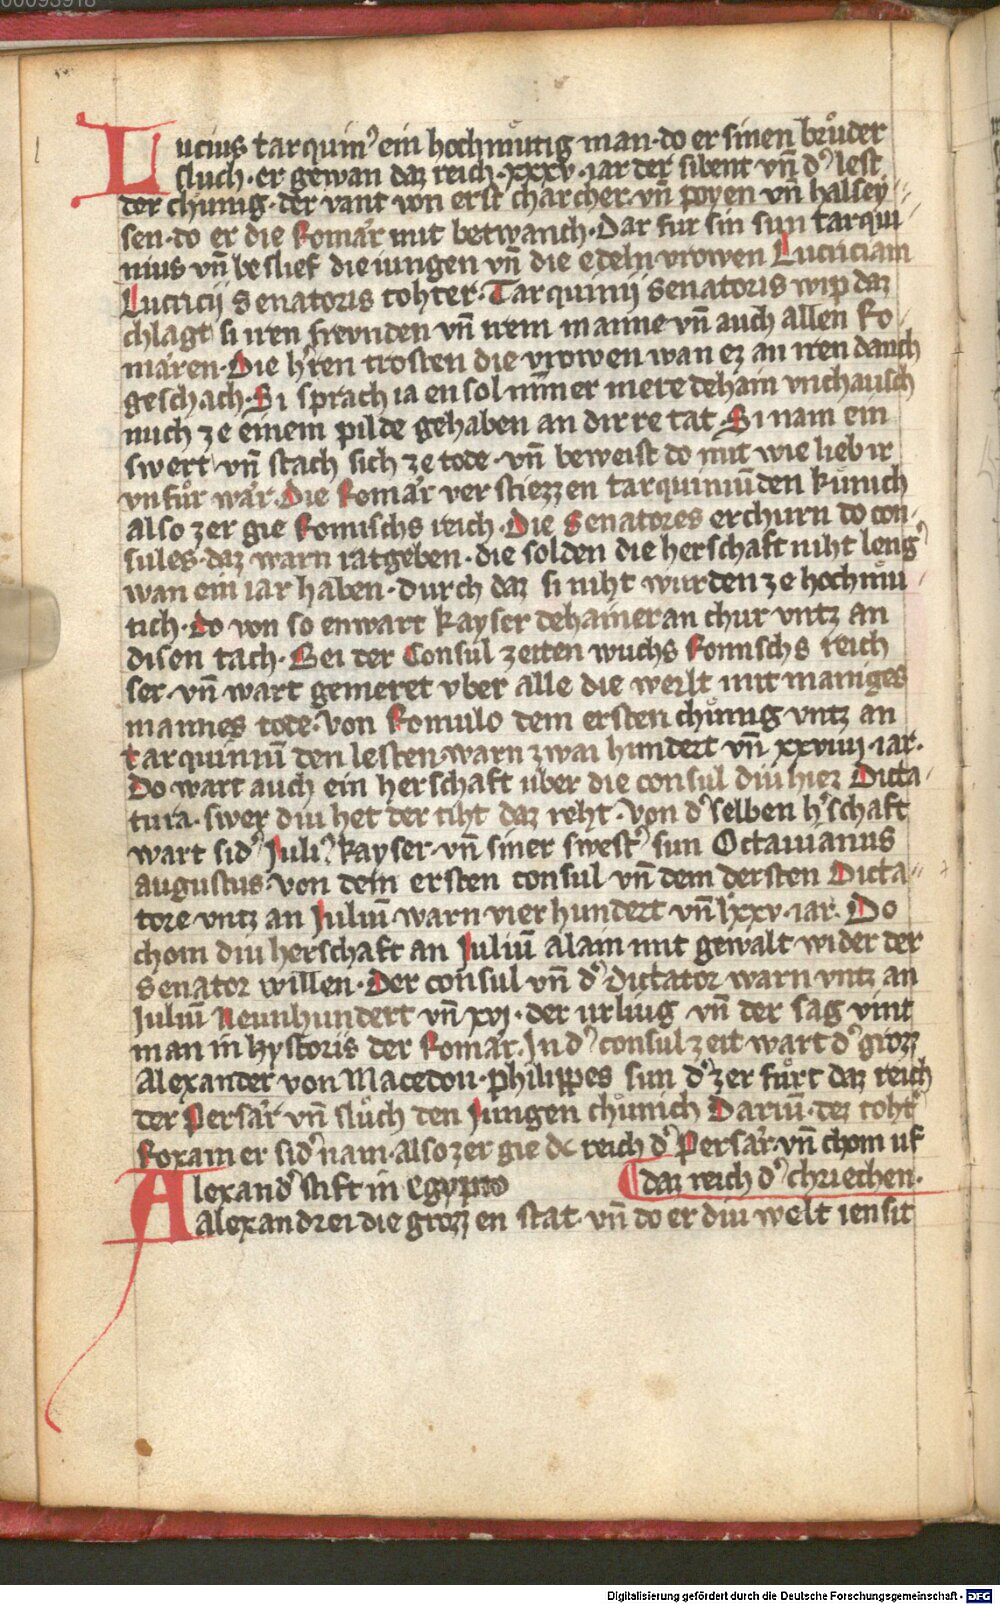 00093918
Lucius tarquini᾽ ein hochmuͤtig man · do er sinen bruͦder
sluch · er gewan daz reich · xxxv · iar der sibent vn̄ d᾽ lest
der chunig · der vant von erst charcher · vn̄ poyen vn̄ halsey
sen · do er die Romaͤr mit betwanch · Dar fur sin sun tarqui
nius vn̄ beslief die iungen vn̄ die edeln vrowen Lucriciam
Lucricij Senatoris tohter · Tarquinij Senatoris wip daz
chlagt si iren frevnden vn̄ irem manne vn̄ auch allen Ro
maren · Die h᾽ren trosten die vrowen wan ez an iren danch
geschach · Si sprach ia en sol nim̄er mere dehain vnchausch
mich ze einem pilde gehaben an dirre tat · Si nam ein
swert vn̄ stach sich ze tode · vn̄ beweist do mit wie lieb ir
vnfuͦr waͤr · Die Romaͤr verstiezzen tarquiniū den kuͤnich
also zer gie Romischs reich · Die Senatores erchurn do con
sules · daz warn ratgeben · die solden die herschaft niht leng᾽
wan ein iar haben · durch daz si niht wurden ze hochmuͤ
tich · do von so enwart kayser dehainer an chur vntz an
disen tach · Bei der Consul zeiten wuchs Romischs reich
ser · vn̄ wart gemeret vber alle die werlt mit maniges
mannes tode · von Romulo dem ersten chuͤnig vntz an
tarquiniū den lesten · warn zwai hundert vn̄ xxviiij · iar ·
Do wart auch ein herschaft uber die consul diu hiez Dicta
tura · swer diu het der tiht daz reht · von d᾽ selben h᾽schaft
wart sid᾽ Juli᾽ kayser · vn̄ siner swest᾽ sun Octauianus
augustus · von dem ersten consul vn̄ dem dersten Dicta
tore vntz an Juliū warn vier hundert vn̄ lxxv · iar · Do
chom diu herschaft an Juliū alain mit gewalt wider der
Senator willen · Der consul vn̄ d᾽ dictator warn vntz an
Juliū Neunhundert vn̄ xvj · der urliug vn̄ der sag vint
man in hystoris der Romaͤr · In d᾽ consul zeit wart d᾽ grozz
Alexander von Macedon · philippes sun d᾽ zer fuͤrt daz reich
der Persaͤr vn̄ sluͦch den Jungen chuͤnich Dariū · dez toht᾽
Roxam er sid᾽ nam · also zer gie dc reich d᾽ Persaͤr · vn̄ chom uf
daz reich d᾽ chriechen ·
Alexand᾽ stift in Egypto
alexandrei die grozzen stat · vn̄ do er diu welt iensit
Digitalisierung gefördert durch die Deutsche Forschungsgemeinschaft - DFG